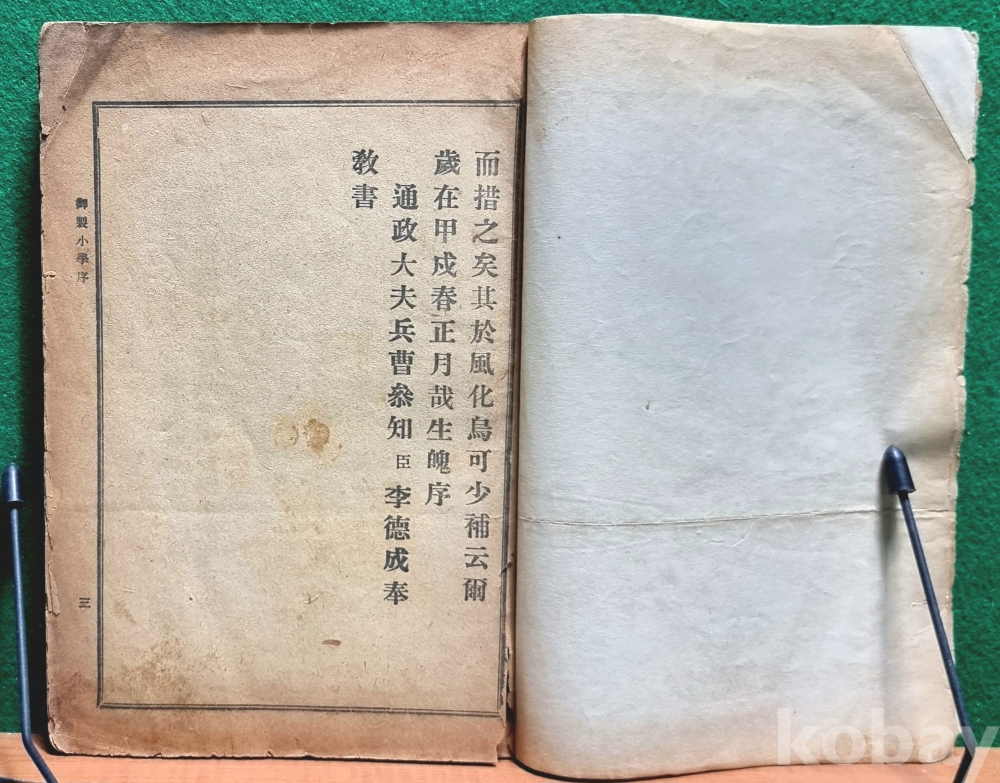 而措之矣其於風化烏可少補云爾
歲在甲戍春正月哉生魄序
通政大夫兵曹叅知臣李德成奉
敎書
御製小學序
三
kobay